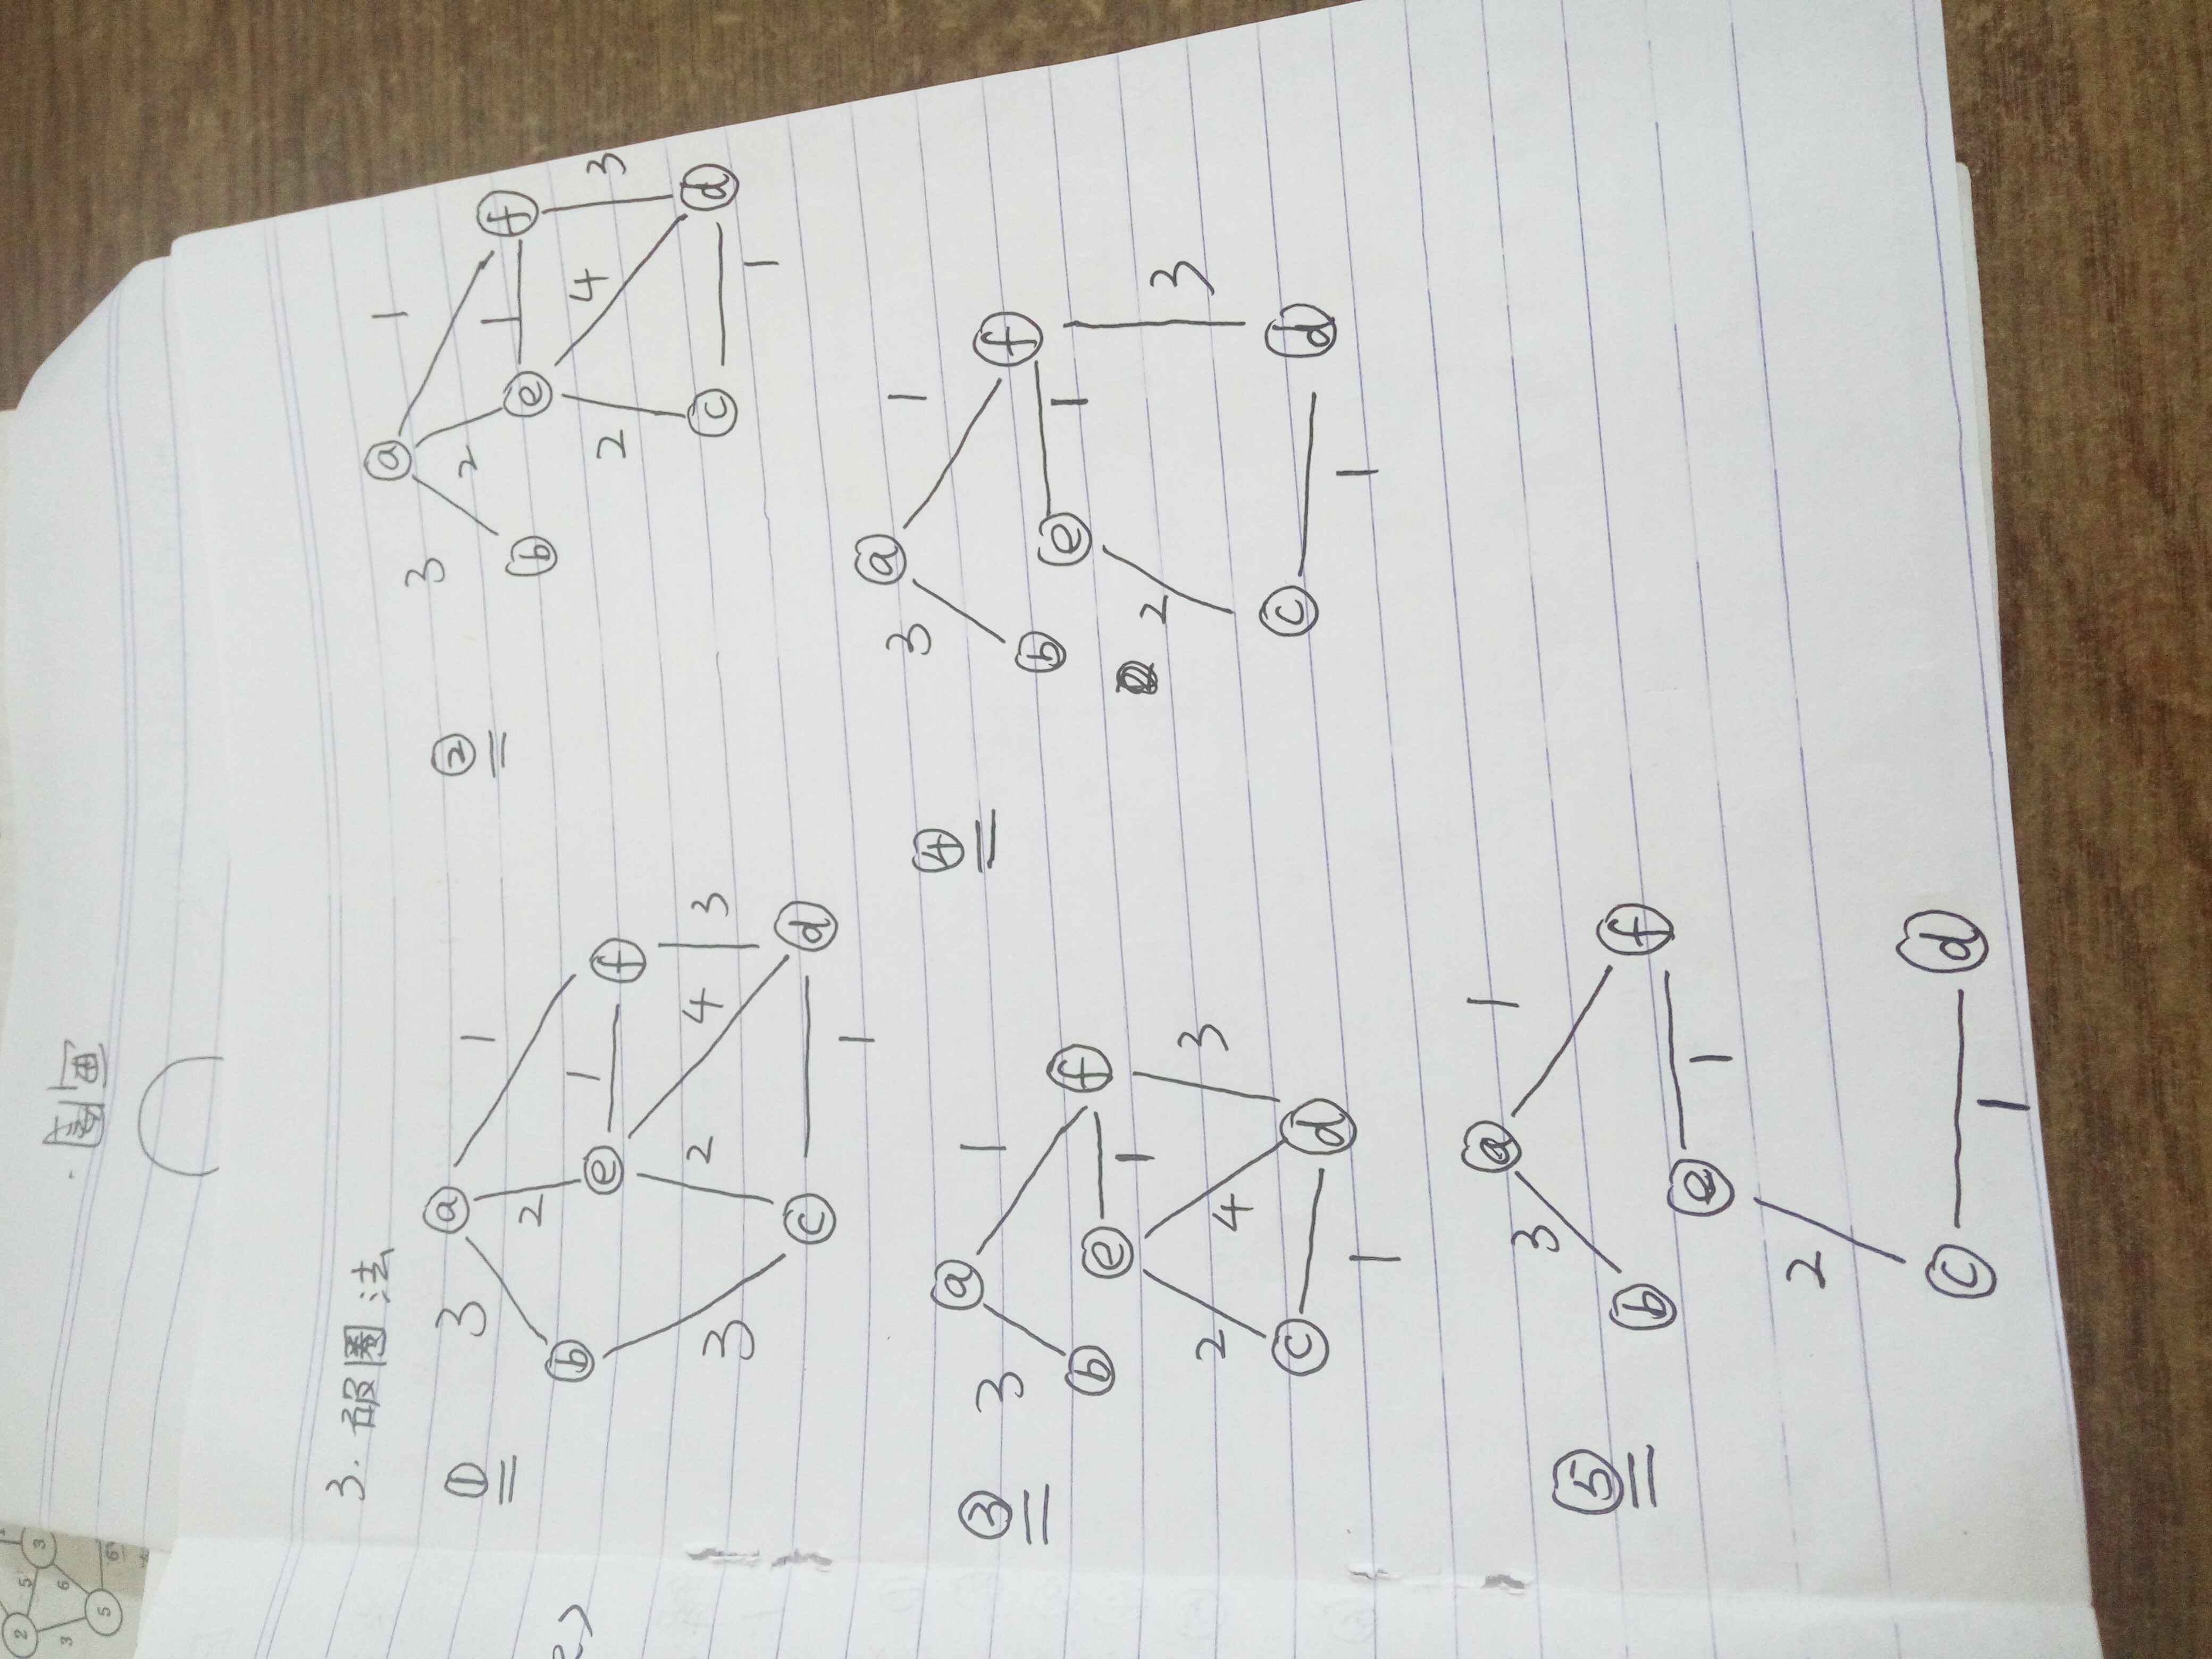 2 5 3
3 6
5 6
3. 破圈法
① 3 ⓐ 1
ⓑ 2 ⓔ 1 ⓕ
3 2 4 3
ⓒ ⓓ
1
② 3 ⓐ 1
ⓑ 2 ⓔ 1 ⓕ
2 4 3
ⓒ ⓓ
1
③ 3 ⓐ 1
ⓑ ⓔ 1 ⓕ
2 4 3
ⓒ ⓓ
1
④ 3 ⓐ 1
ⓑ ⓔ 1 ⓕ
2 3
ⓒ ⓓ
1
⑤ 3 ⓐ 1
ⓑ ⓔ 1 ⓕ
2
ⓒ ⓓ
1